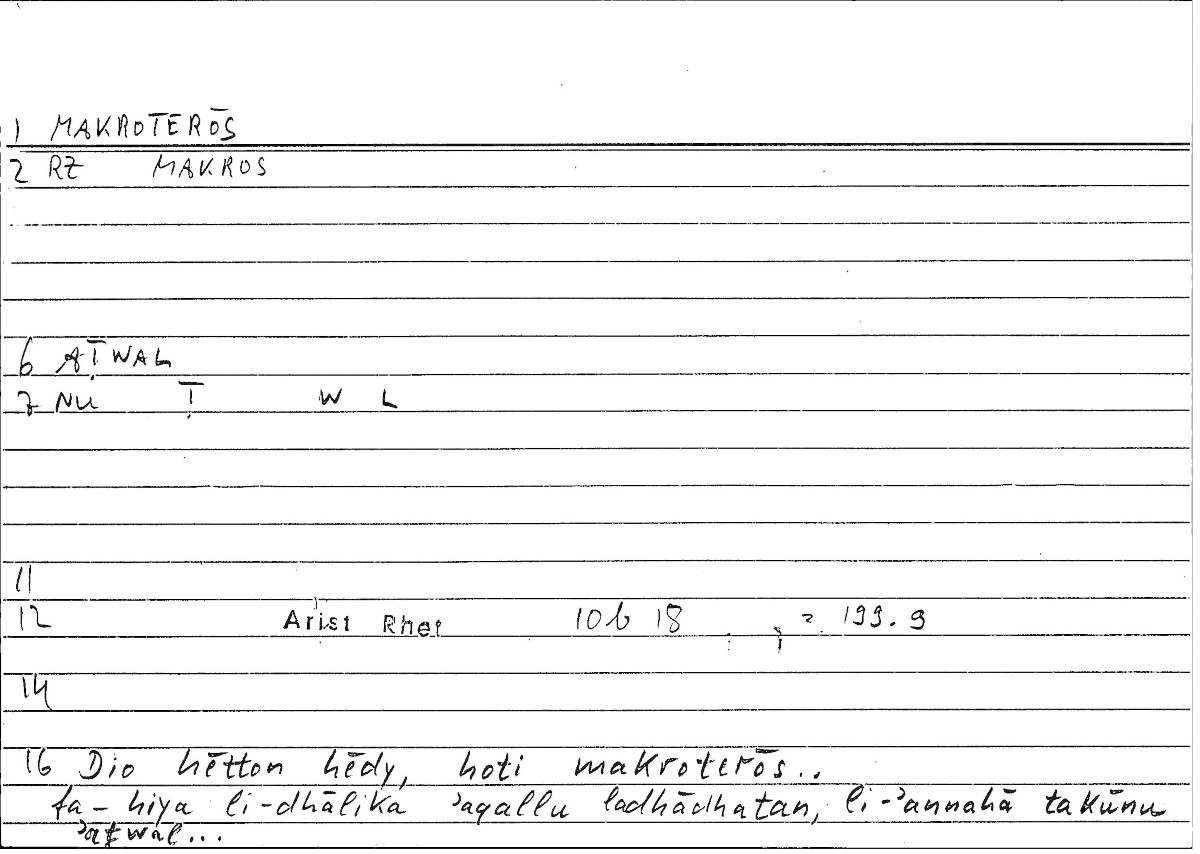 1 MAKROTERŌS
2 RZ MAKROS
6 AṬWAL
7 NU Ṭ W L
11
12 Arist Rhet 10b 18 ; = 199.9
14
16 Dio hētton hēdy, hoti makroterōs..
fa-hiya li-dhālika ʾaqallu ladhādhatan, li-ʾannahā takūnu
ʾaṭwal...